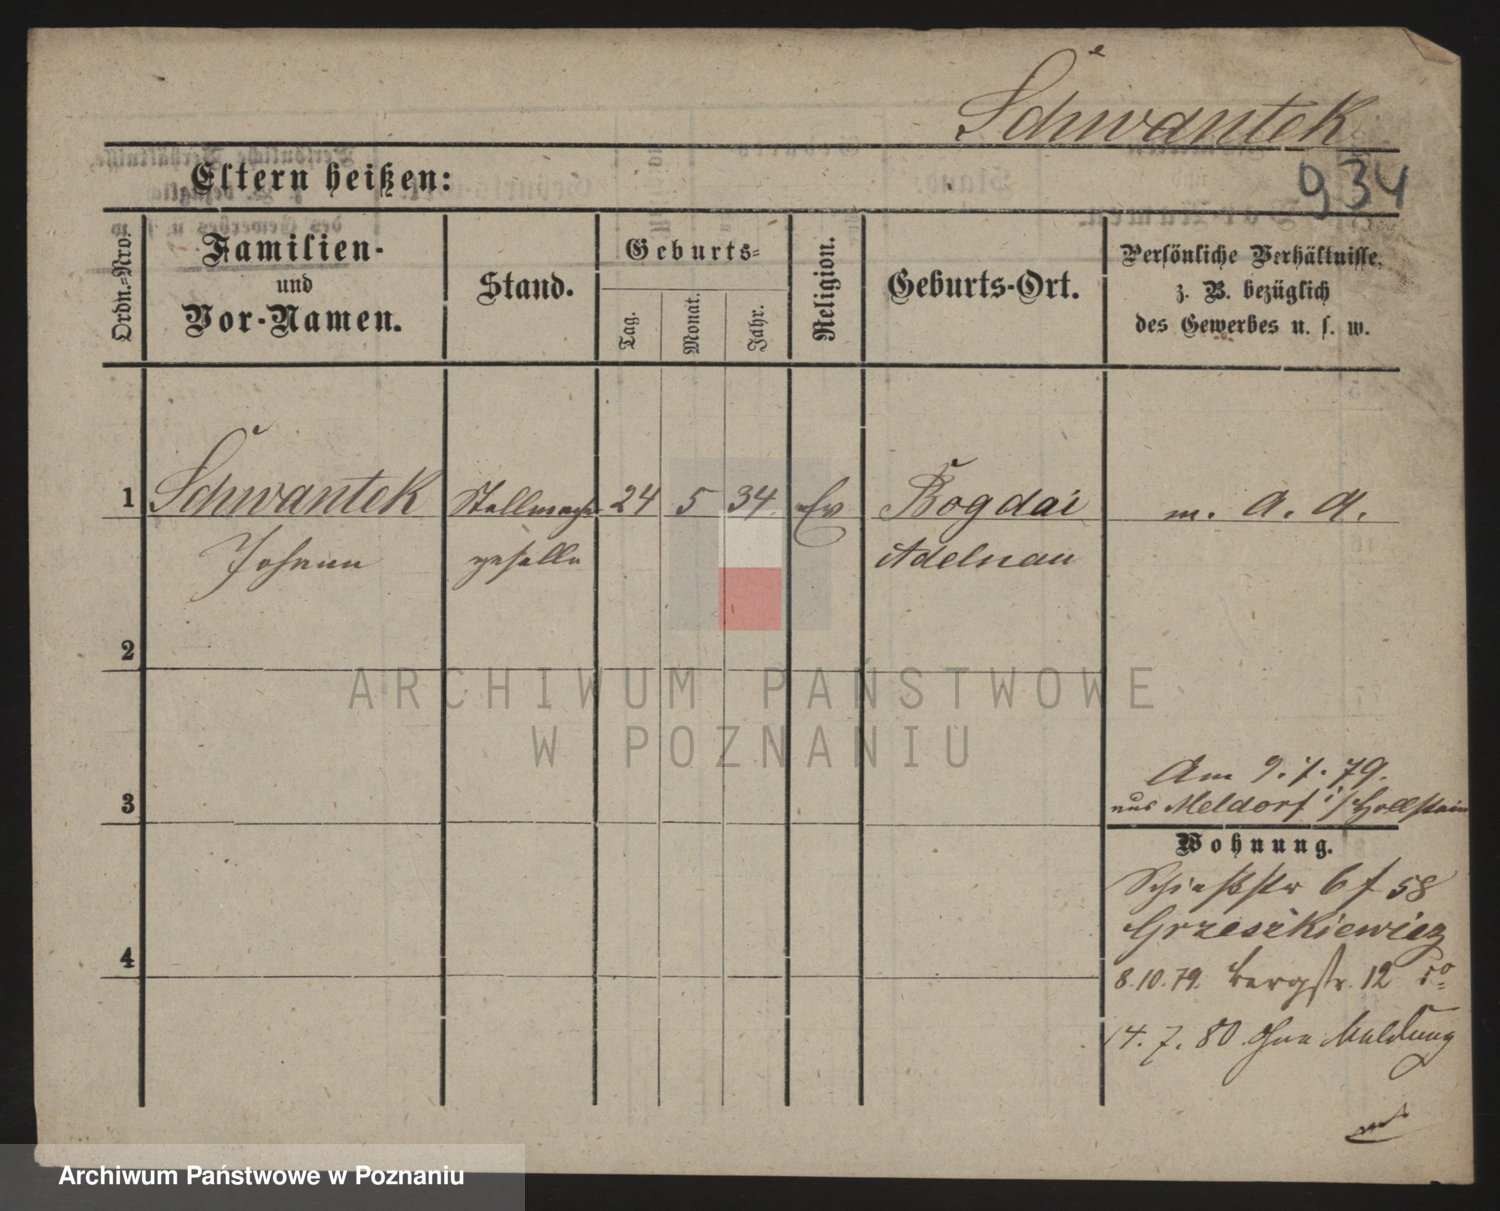 Schwantek
934
Eltern heißen:
Ordn.-Nro.
Familien-
und
Vor-Namen.
Stand.
Geburts-
Tag.
Monat.
Jahr.
Religion.
Geburts-Ort.
Persönliche Verhältnisse,
z. B. bezüglich
des Gewerbes u. s. w.
1 Schwantek Stellmach 24 5 34 Ev Bogdai m. a. A.
Johann geselle Adelnau
2
ARCHIWUM PAŃSTWOWE
W POZNANIU
Am 9. 7. 79.
3 aus Meldorf i/Hollstein
Wohnung.
Schießstr 6 f 58
Grzeszkiewicz
4 8.10.79. Bergstr. 12
14. 7. 80 ohne Meldung
Archiwum Państwowe w Poznaniu